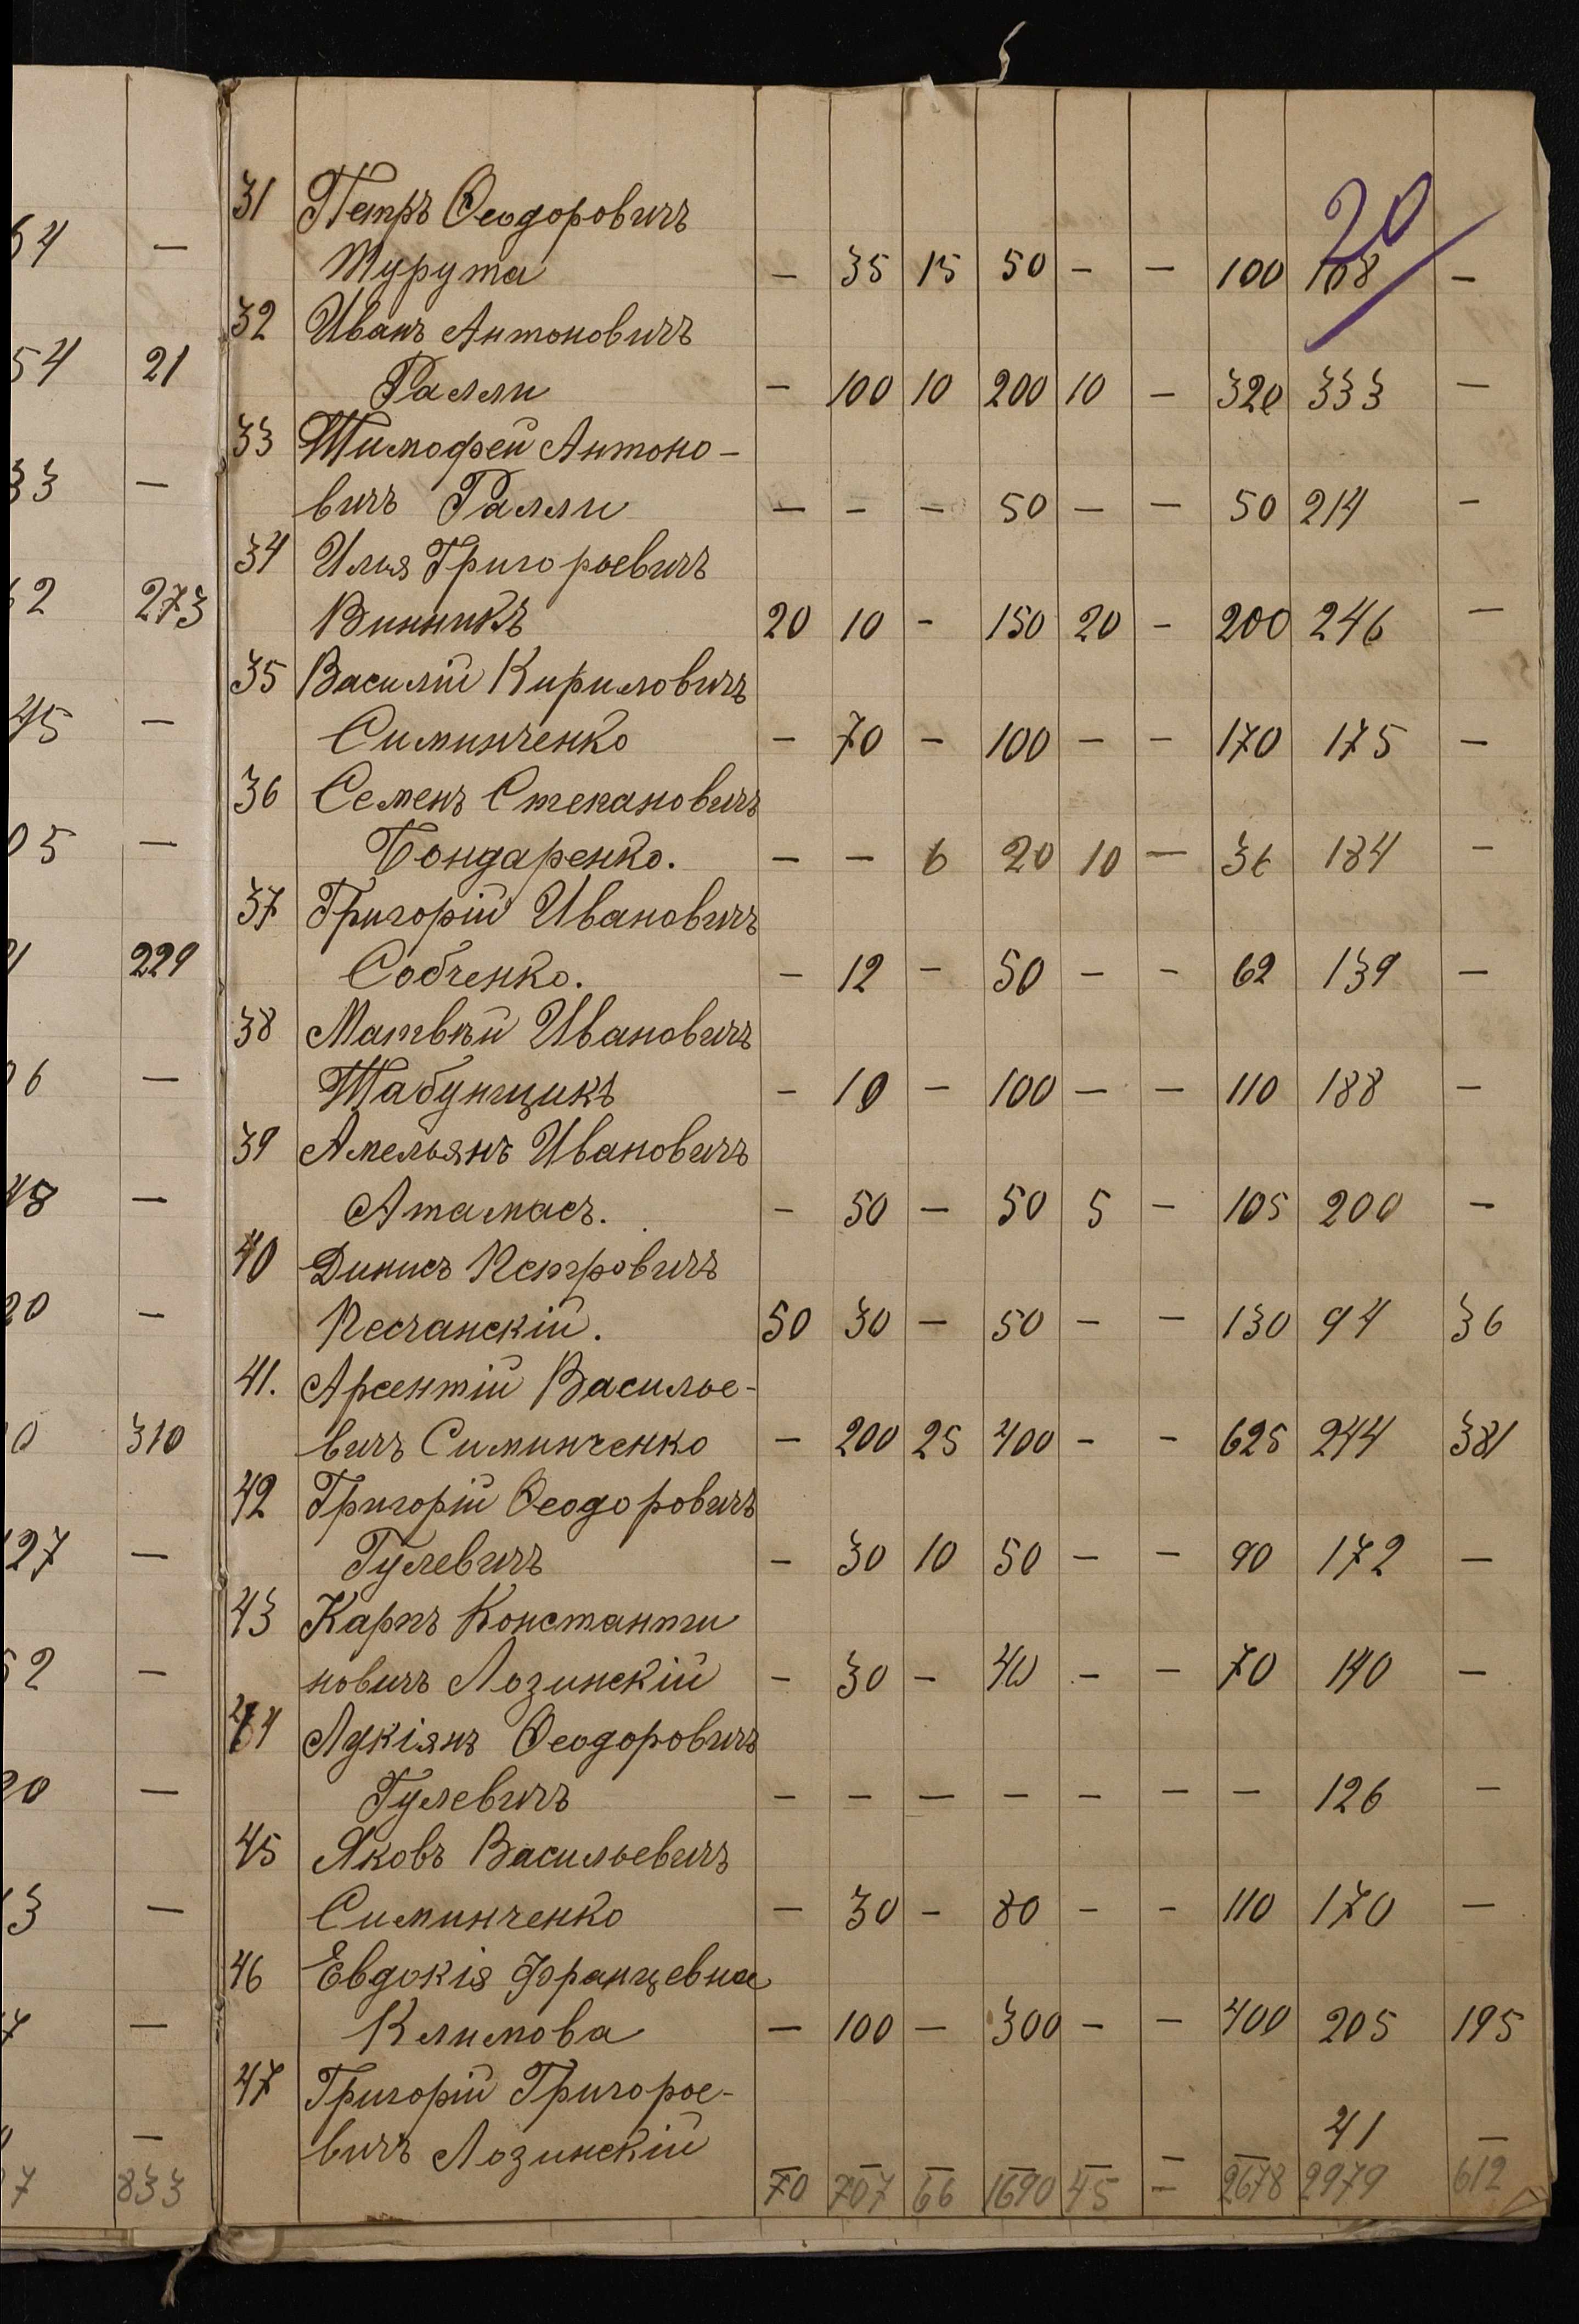 20
31 Петръ Ѳеодоровичъ
Мурута — 35 15 50 — — 100 168 —
54 —
32 Иванъ Антоновичъ
Ралли — 100 10 200 10 — 320 333 —
54 21
33 Тимофей Антоно-
вичъ Ралли — — — 50 — — 50 214 —
33 —
34 Илья Григорьевичъ
Винникъ 20 10 — 150 20 — 200 246 —
2 273
35 Василій Кириловичъ
Симинченко — 70 — 100 — — 170 175 —
45 —
36 Семенъ Степановичъ
Бондаренко. — — 6 20 10 — 36 184 —
05 —
37 Григорій Ивановичъ
Собченко. — 12 — 50 — — 62 139 —
229
38 Матвѣй Ивановичъ
Табунщикъ — 10 — 100 — — 110 188 —
6 —
39 Амельянъ Ивановичъ
Атамасъ. — 50 — 50 5 — 105 200 —
48 —
40 Динисъ Петровичъ
Песчанскій. 50 30 — 50 — — 130 94 36
20 —
41. Арсентій Василье-
вичъ Симинченко — 200 25 400 — — 625 244 381
0 310
42 Григорій Ѳеодоровичъ
Гулевичъ — 30 10 50 — — 90 172 —
27 —
43 Карпъ Константи
новичъ Лозинскій — 30 — 40 — — 70 140 —
52 —
44 Лукіянъ Ѳеодоровичъ
Гулевичъ — — — — — — — 126 —
20 —
45 Яковъ Васильевичъ
Симинченко — 30 — 80 — — 110 170 —
3 —
46 Евдокія Францевна
Климова — 100 — 300 — — 400 205 195
7 —
47 Григорій Григорье-
вичъ Лозинскій — — — — — — — 41 —
—
70 707 66 1690 45 — 2678 2979 612
7 833